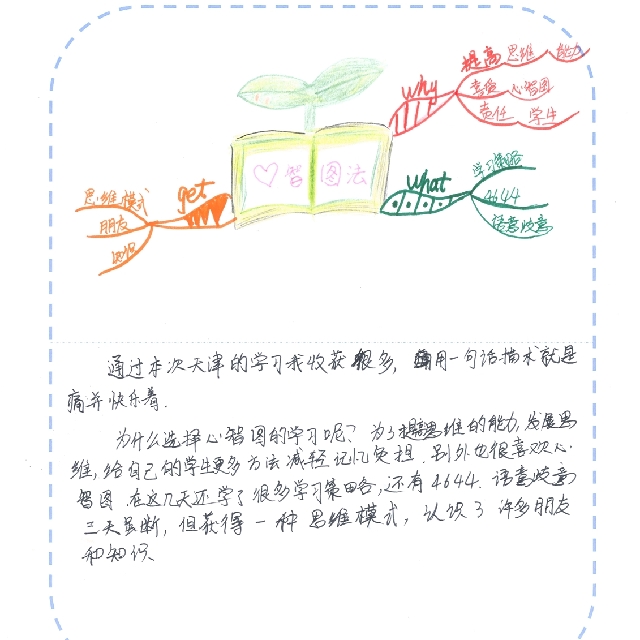 why
提高 思维 能力
喜爱 心智图
责任 学生
♡智图法
what
学习策略
4644
语意歧意
get
思维模式
朋友
知识
通过本次天津的学习我收获很多，用一句话描术就是
痛并快乐着.
为什么选择心智图的学习呢？为了提高思维的能力,发展思
维,给自己的学生更多方法减轻记忆负担.另外也很喜欢心
智图.在这几天还学了很多学习策略,还有4644.语意歧意
三天虽断,但获得一种思维模式,认识了许多朋友
和知识.